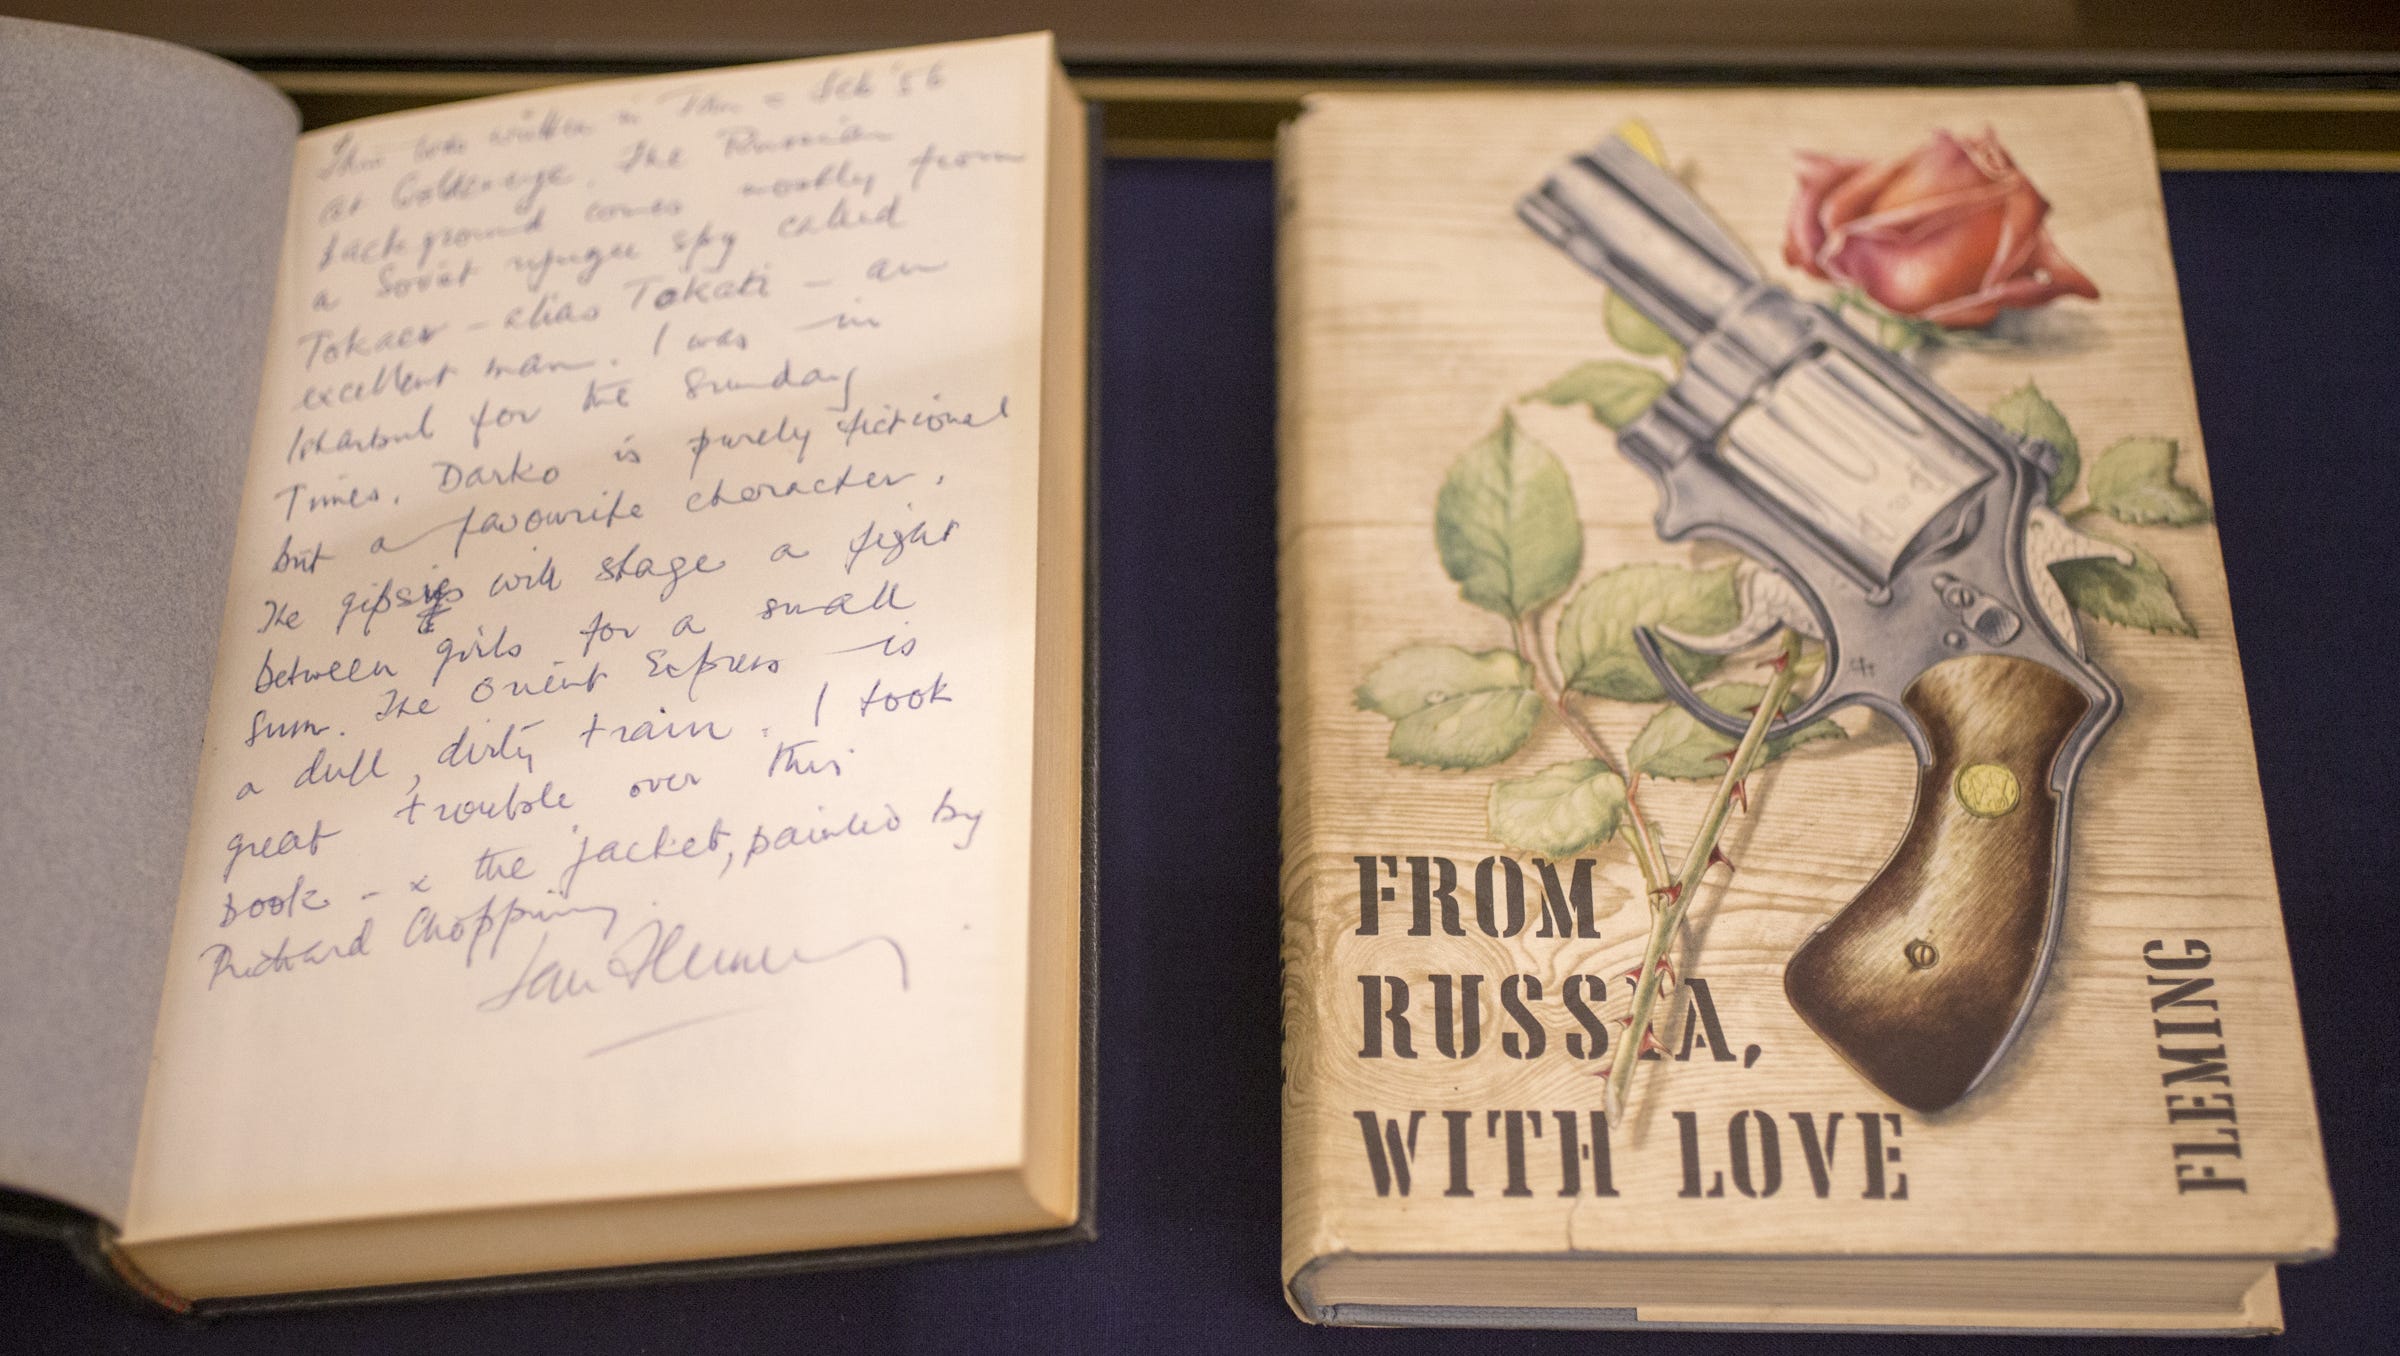 This was written in Jan - Feb '56
at Goldeneye. The Russian
background comes mostly from
a Soviet refugee spy called
Tokaev - alias Tokati - an
excellent man. I was in
Istanbul for the Sunday
Times. Darko is purely fictional
but a favourite character.
The gipsies will stage a fight
between girls for a small
sum. The Orient Express is
a dull, dirty train. I took
great trouble over this
book - x the jacket, painted by
Richard Chopping.
Ian Fleming
FROM
RUSSIA,
WITH LOVE
FLEMING